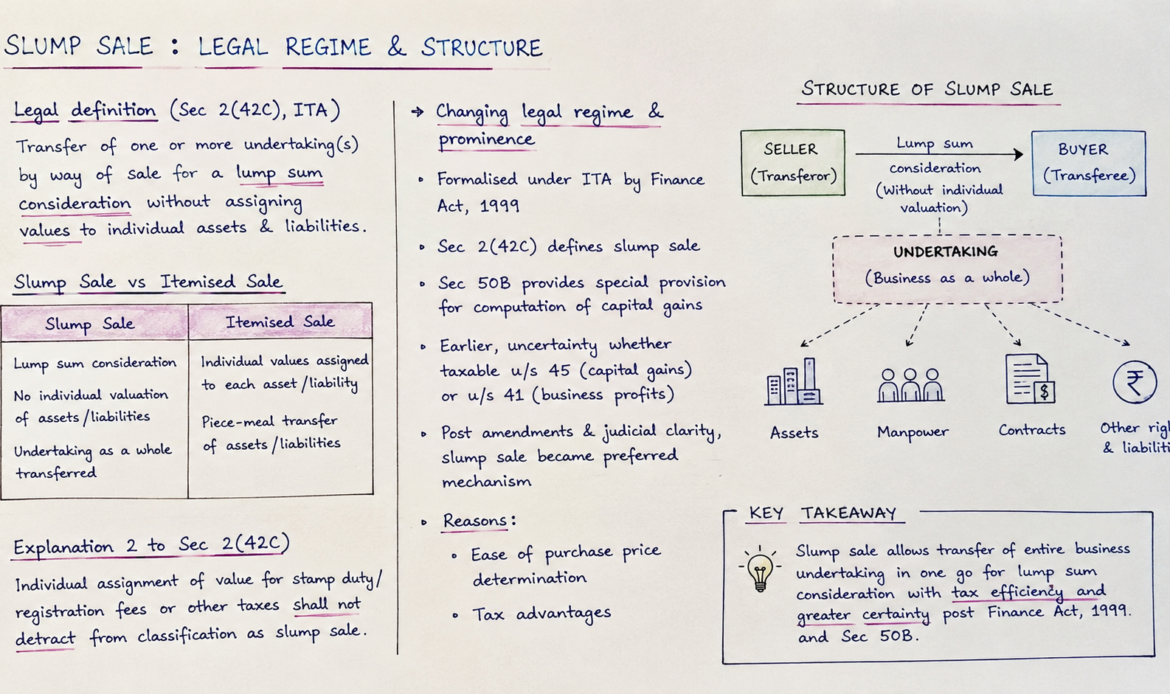 SLUMP SALE : LEGAL REGIME & STRUCTURE
Legal definition (Sec 2(42C), ITA)
Transfer of one or more undertaking(s)
by way of sale for a lump sum
consideration without assigning
values to individual assets & liabilities.
Slump Sale vs Itemised Sale
Slump Sale
Lump sum consideration
No individual valuation
of assets/liabilities
Undertaking as a whole
transferred
Itemised Sale
Individual values assigned
to each asset/liability
Piece-meal transfer
of assets/liabilities
Explanation 2 to Sec 2(42C)
Individual assignment of value for stamp duty/
registration fees or other taxes shall not
detract from classification as slump sale.
→ Changing legal regime &
prominence
• Formalised under ITA by Finance
Act, 1999
• Sec 2(42C) defines slump sale
• Sec 50B provides special provision
for computation of capital gains
• Earlier, uncertainty whether
taxable u/s 45 (capital gains)
or u/s 41 (business profits)
• Post amendments & judicial clarity,
slump sale became preferred
mechanism
• Reasons:
• Ease of purchase price
determination
• Tax advantages
STRUCTURE OF SLUMP SALE
SELLER
(Transferor)
Lump sum
consideration
(Without individual
valuation)
BUYER
(Transferee)
UNDERTAKING
(Business as a whole)
$
₹
Assets
Manpower
Contracts
Other rig
& liabiliti
KEY TAKEAWAY
Slump sale allows transfer of entire business
undertaking in one go for lump sum
consideration with tax efficiency and
greater certainty post Finance Act, 1999.
and Sec 50B.